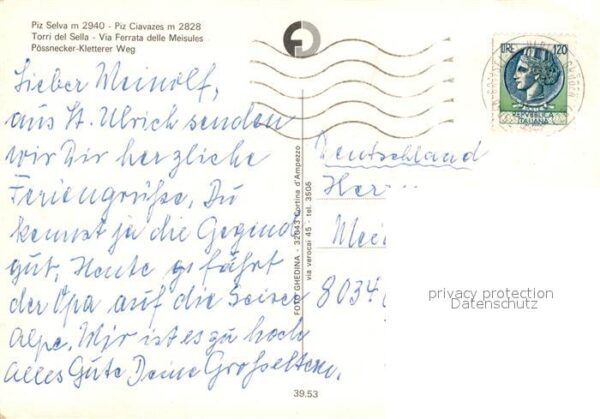 Piz Selva m 2940 - Piz Ciavazes m 2828
Torri del Sella - Via Ferrata delle Meisules
Pössnecker-Kletterer Weg
Lieber Meinolf,
aus St. Ulrich senden
wir Dir herzliche
Feriengrüße. Du
kennst ja die Gegend
gut. Heute fährt
der Opa auf die Seiser
Alpe. Mir ist es zu hoch
Alles Gute Deine Großeltern.
FOTO GHEDINA - 32043 Cortina d'Ampezzo
via verocai 45 - tel. 3508
39.53
LIRE 120
REPVBBLICA
ITALIANA
Deutschland
Her
Mei
8034
privacy protection
Datenschutz